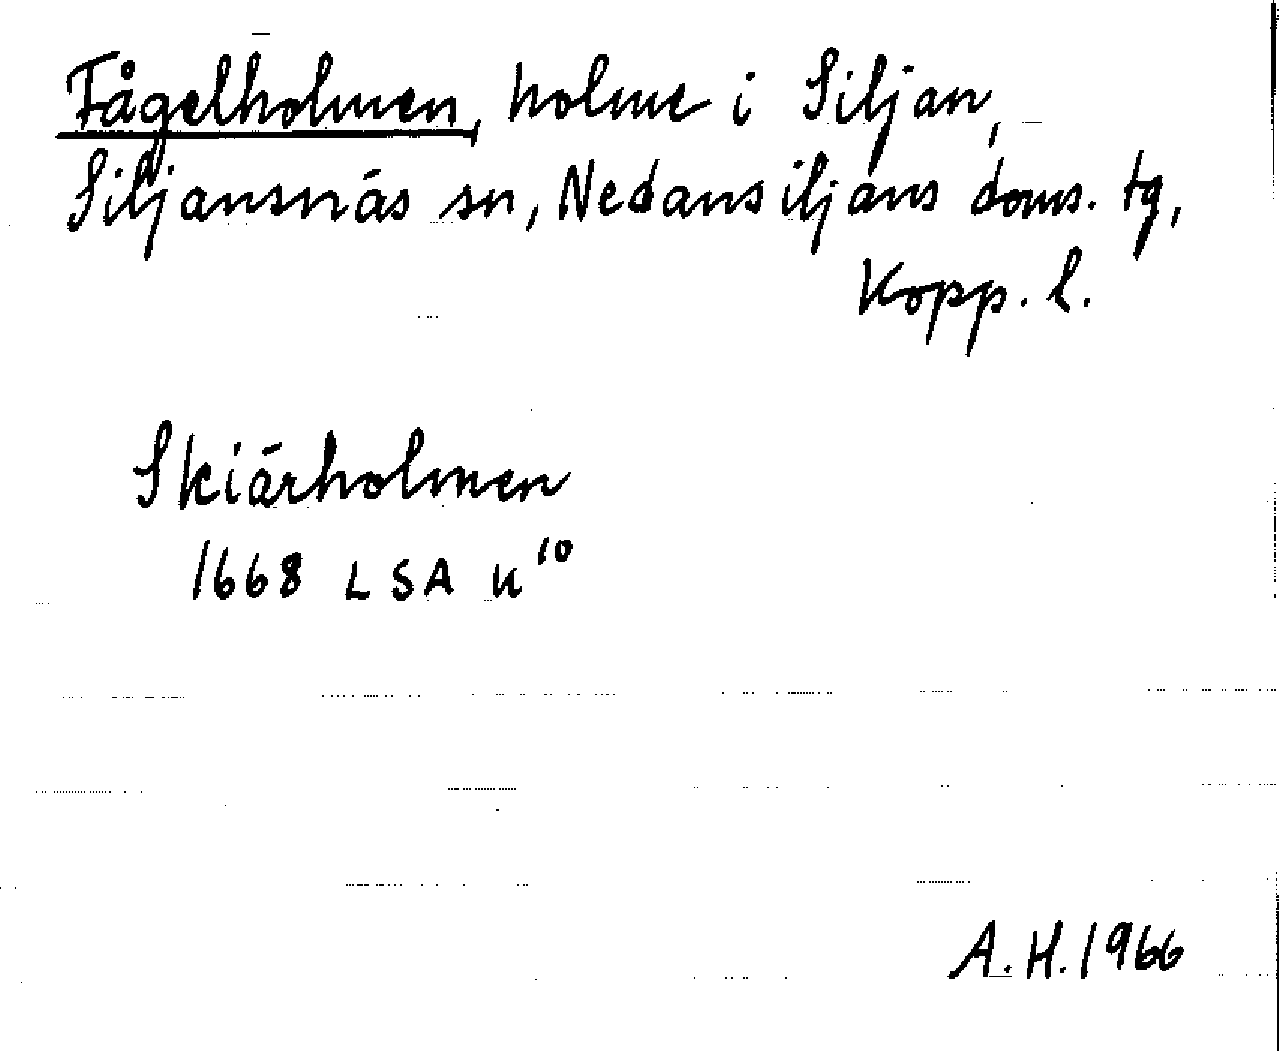 Fågelholmen, holme i Siljan,
Siljansnäs sn, Nedansiljans doms. tg,
Kopp. l.
Skiärholmen
1668 LSA U¹⁰
A.H. 1966